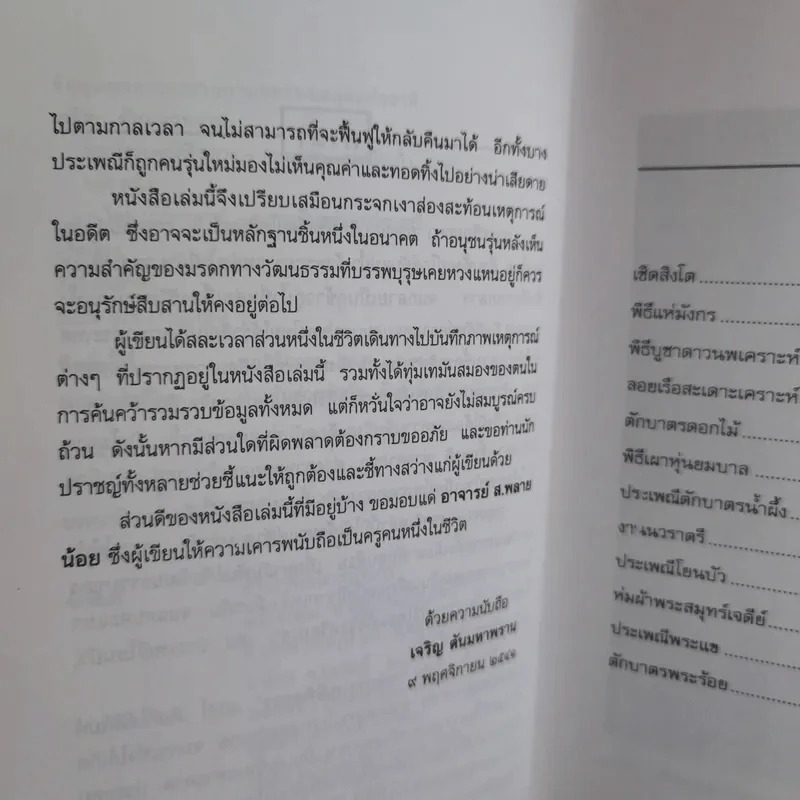 ไปตามกาลเวลา จนไม่สามารถที่จะฟื้นฟูให้กลับคืนมาได้ อีกทั้งบาง
ประเพณีก็ถูกคนรุ่นใหม่มองไม่เห็นคุณค่าและทอดทิ้งไปอย่างน่าเสียดาย
หนังสือเล่มนี้จึงเปรียบเสมือนกระจกเงาส่องสะท้อนเหตุการณ์
ในอดีต ซึ่งอาจจะเป็นหลักฐานชิ้นหนึ่งในอนาคต ถ้าอนุชนรุ่นหลังเห็น
ความสำคัญของมรดกทางวัฒนธรรมที่บรรพบุรุษเคยหวงแหนอยู่ก็ควร
จะอนุรักษ์สืบสานให้คงอยู่ต่อไป
ผู้เขียนได้สละเวลาส่วนหนึ่งในชีวิตเดินทางไปบันทึกภาพเหตุการณ์
ต่างๆ ที่ปรากฏอยู่ในหนังสือเล่มนี้ รวมทั้งได้ทุ่มเทมันสมองของตนใน
การค้นคว้ารวมรวบข้อมูลทั้งหมด แต่ก็หวั่นใจว่าอาจยังไม่สมบูรณ์ครบ
ถ้วน ดังนั้นหากมีส่วนใดที่ผิดพลาดต้องกราบขออภัย และขอท่านนัก
ปราชญ์ทั้งหลายช่วยชี้แนะให้ถูกต้องและชี้ทางสว่างแก่ผู้เขียนด้วย
ส่วนดีของหนังสือเล่มนี้ที่มีอยู่บ้าง ขอมอบแด่ อาจารย์ ส.พลาย
น้อย ซึ่งผู้เขียนให้ความเคารพนับถือเป็นครูคนหนึ่งในชีวิต
ด้วยความนับถือ
เจริญ ตันมหาพราน
๙ พฤศจิกายน ๒๕๔๑
เชิดสิงโต
พิธีแห่มังกร
พิธีบูชาดาวนพเคราะห์
ลอยเรือสะเดาะเคราะห์
ตักบาตรดอกไม้
พิธีเผาหุ่นยมบาล
ประเพณีตักบาตรน้ำผึ้ง
งานนวราตรี
ประเพณีโยนบัว
ห่มผ้าพระสมุทร์เจดีย์
ประเพณีพระแข
ตักบาตรพระร้อย